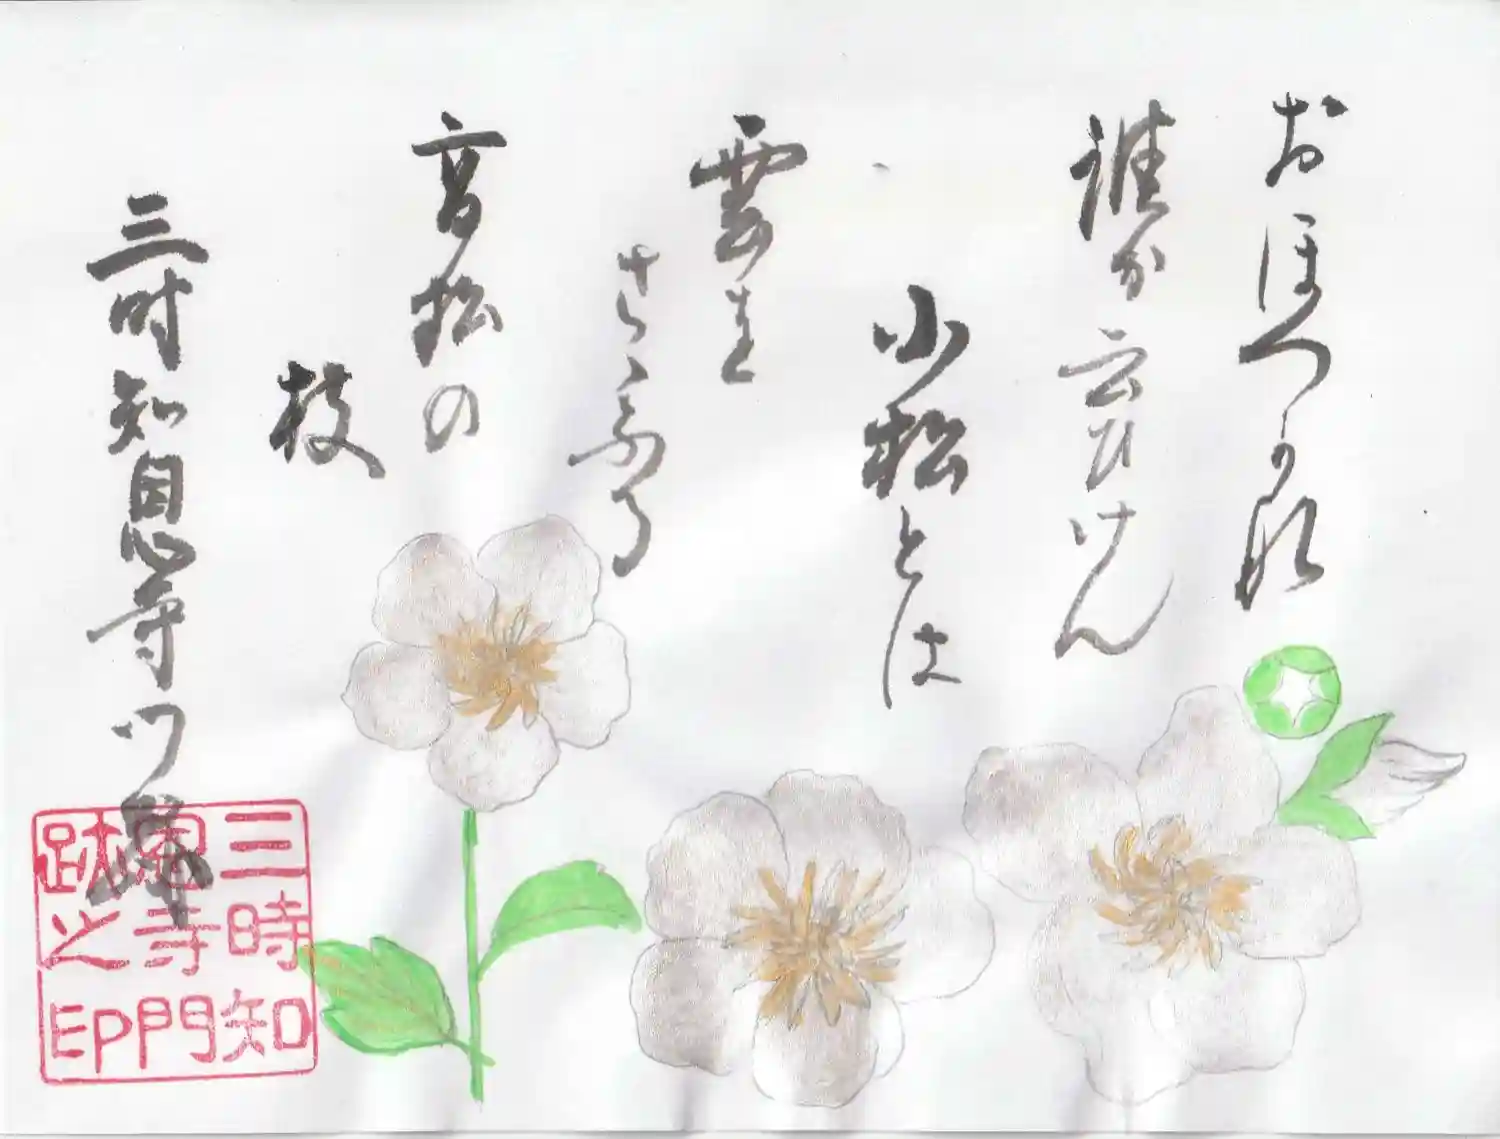 おほつかな
誰か云ひけん
小松とは
雲を
さゝふる
高松の
枝
三时知恩寺门跡
三時知
恩寺門
跡之印